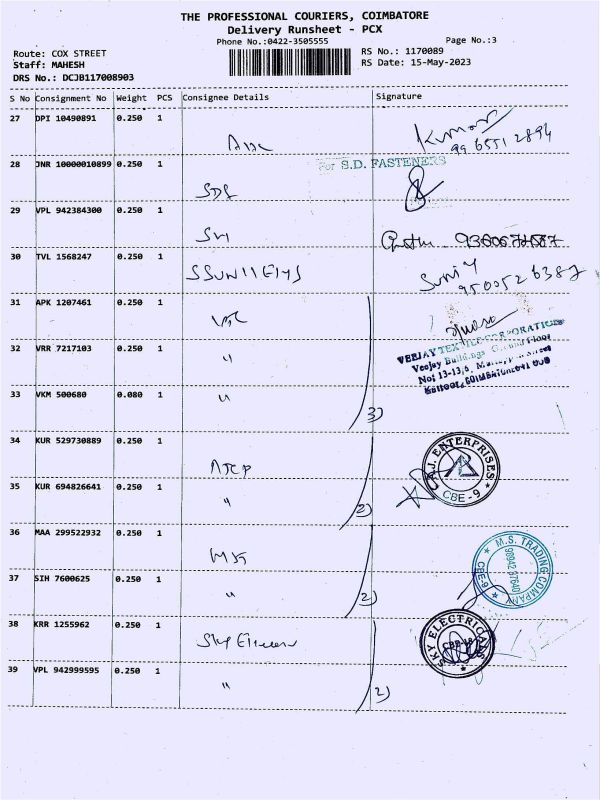 THE PROFESSIONAL COURIERS, COIMBATORE
Delivery Runsheet - PCX
Phone No.:0422-3505555
Page No.:3
Route: COX STREET
RS No.: 1170089
Staff: MAHESH
RS Date: 15-May-2023
DRS No.: DCJB117008903
S No Consignment No Weight PCS Consignee Details Signature
27 DPI 10490891 0.250 1
Kumar
28 JNR 10000010899 0.250 1
For S.D. FASTENERS
SDS
29 VPL 942384300 0.250 1
30 TVL 1568247 0.250 1
Sunil
31 APK 1207461 0.250 1
VEEJAY TEXTILE CORPORATION
32 VRR 7217103 0.250 1 "
33 VKM 500680 0.080 1 "
3)
34 KUR 529730889 0.250 1
A.J. ENTERPRISES
CBE - 9
35 KUR 694826641 0.250 1 "
2)
36 MAA 299522932 0.250 1
M.S. TRADING COMPANY
CBE-9
98942 07640
37 SIH 7600625 0.250 1 "
2)
38 KRR 1255962 0.250 1
Sky
SKY ELECTRICALS
39 VPL 942999595 0.250 1 "
2)